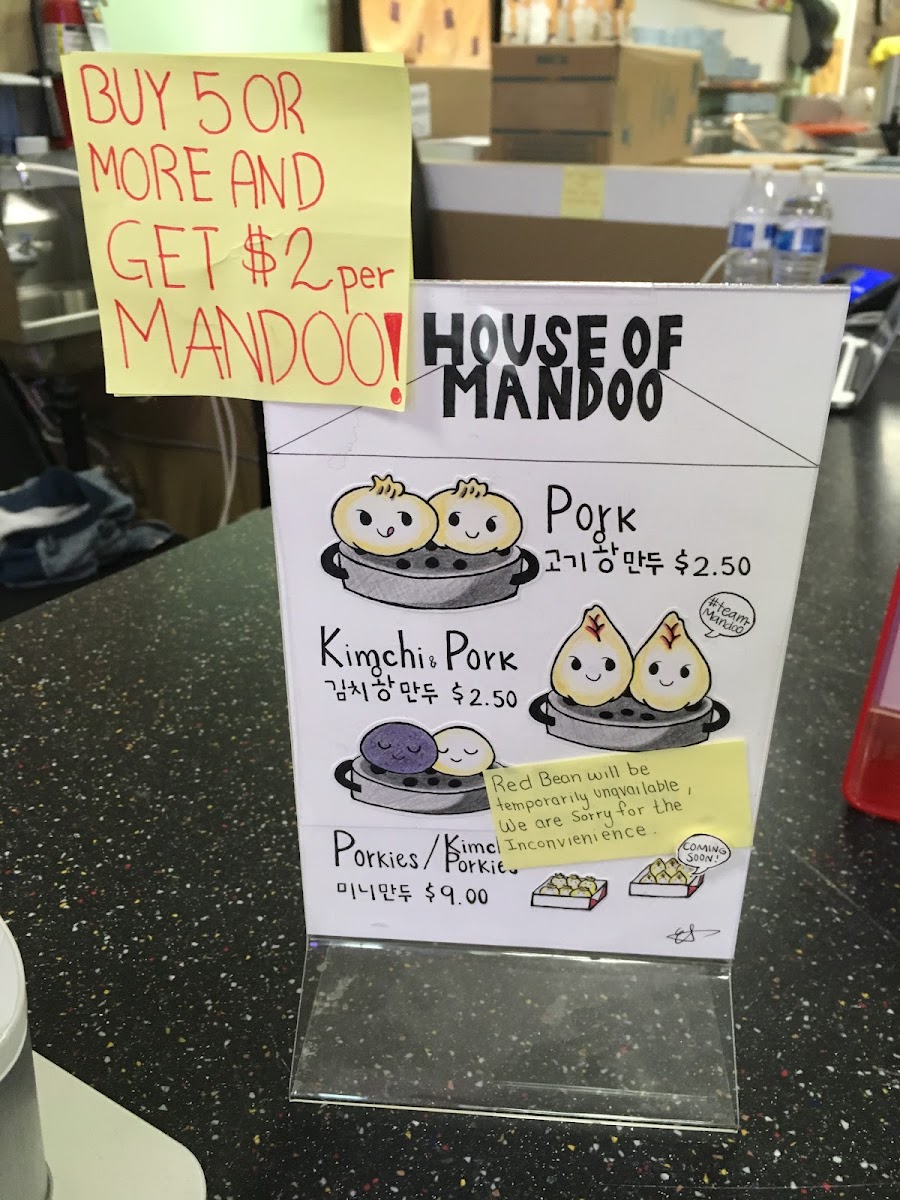 BUY 5 OR
MORE AND
GET $2 per
MANDOO!
HOUSE OF
MANDOO
Pork
고기 왕 만두 $2.50
#team
Mandoo
Kimchi & Pork
김치 왕 만두 $2.50
Red Bean will be
temporarily unavailable,
We are Sorry for the
Inconvienience.
Porkies /
미니만두 $9.00
COMING
SOON!